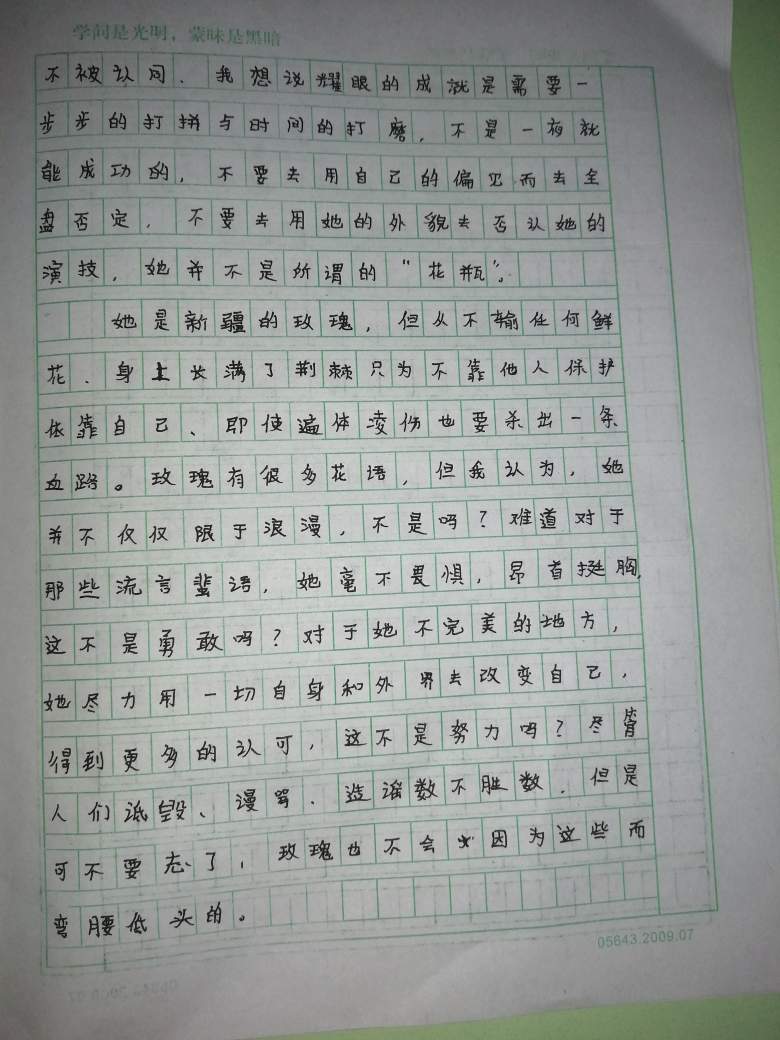 学问是光明，蒙昧是黑暗
不被认同、我想说耀眼的成就是需要一
步步的打拼与时间的打磨，不是一夜就
能成功的，不要去用自己的偏见而去全
盘否定，不要去用她的外貌去否认她的
演技，她并不是所谓的“花瓶”。
她是新疆的玫瑰，但从不输任何鲜
花．身上长满了荆棘只为不靠他人保护
依靠自己、即使遍体凌伤也要杀出一条
血路。玫瑰有很多花语，但我认为，她
并不仅仅限于浪漫，不是吗？难道对于
那些流言蜚语，她毫不畏惧，昂首挺胸，
这不是勇敢吗？对于她不完美的地方，
她尽力用一切自身和外界去改变自己，
得到更多的认可，这不是努力吗？尽管
人们诋毁、谩骂、造谣数不胜数，但是
可不要忘了，玫瑰也不会因为这些而
弯腰低头的。
05643.2009.07